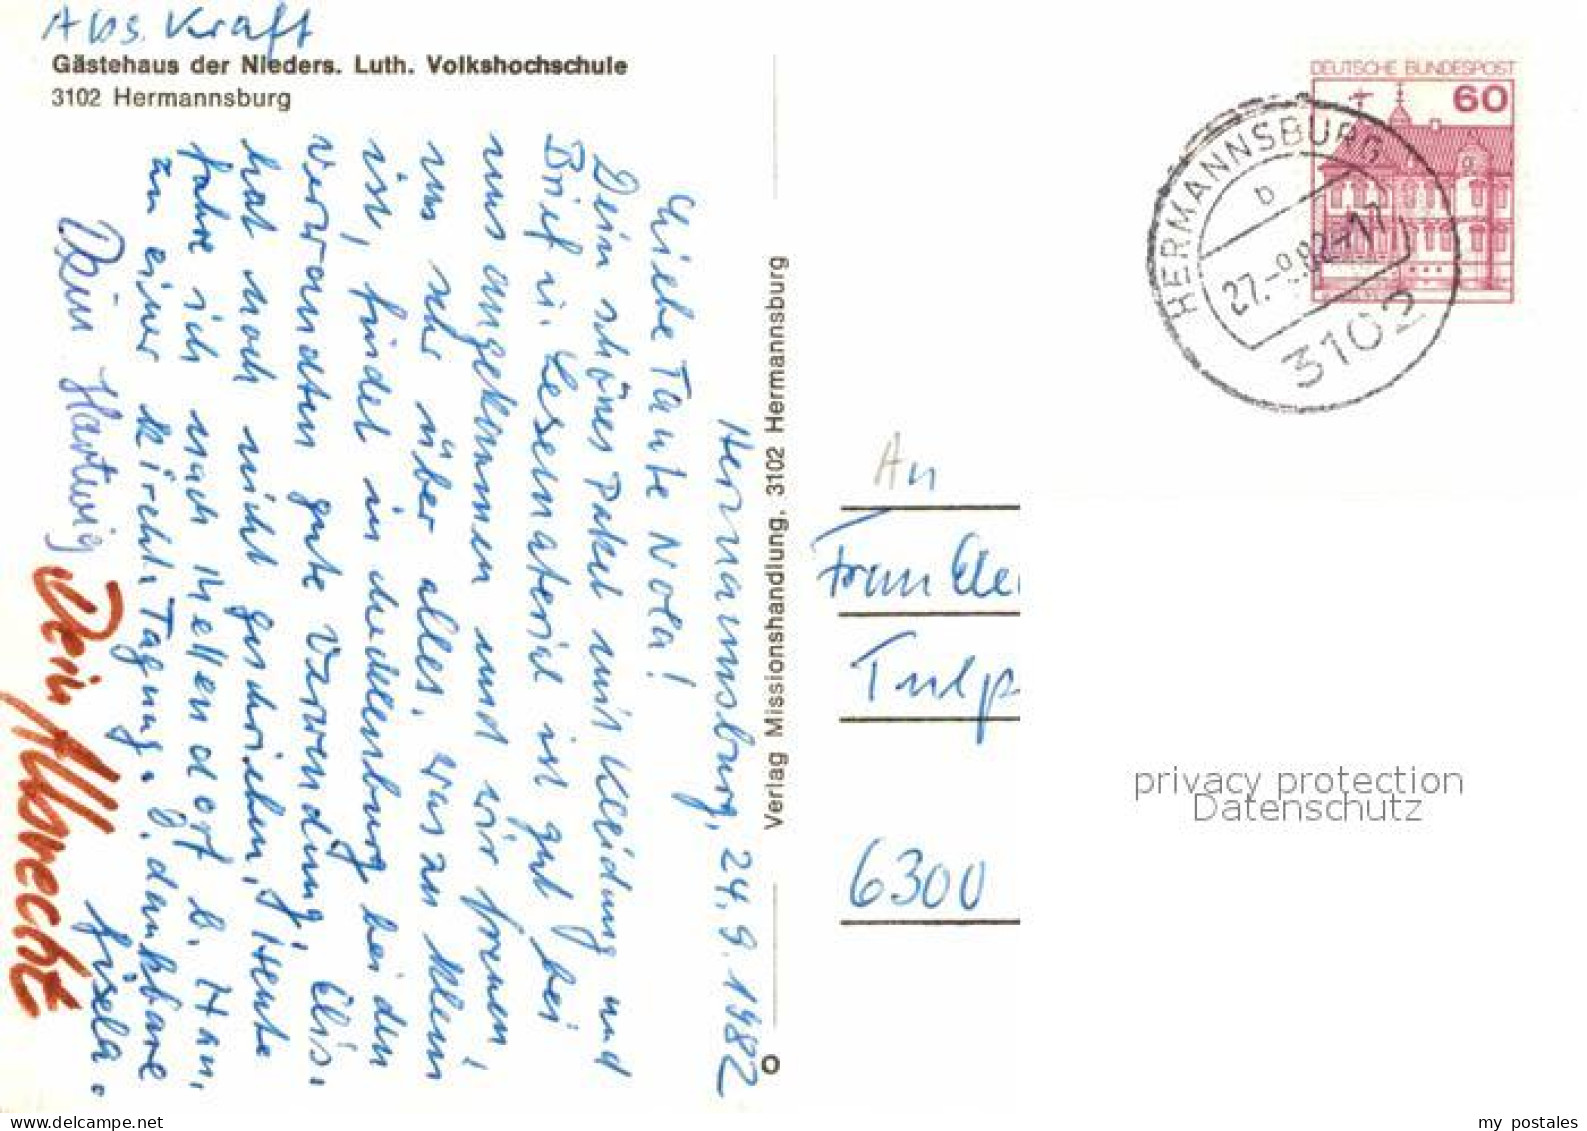 Abs. Kraft
Gästehaus der Nieders. Luth. Volkshochschule
3102 Hermannsburg
Hermannsburg, 24. 9. 1982
Liebe Tante Nora!
Dein schönes Paket mit Kleidung und
Brief u. Lesematerial ist gut bei
uns angekommen und wir freuen
uns sehr über alles. Was zu klein
ist, findet in Mecklenburg bei den
Verwandten gute Verwendung. Elis.
hat noch nicht geschrieben. Heute
fahre ich nach Mellendorf b. Han.
zu einer kirchl. Tagung. D. dankbare
Gisela.
Dein Hartwig
Dein Albrecht
Verlag Missionshandlung, 3102 Hermannsburg
DEUTSCHE BUNDESPOST
60
HERMANNSBURG
b
27.-9.82-17
3102
An
Frau
Tulp
6300
privacy protection
Datenschutz
my postales